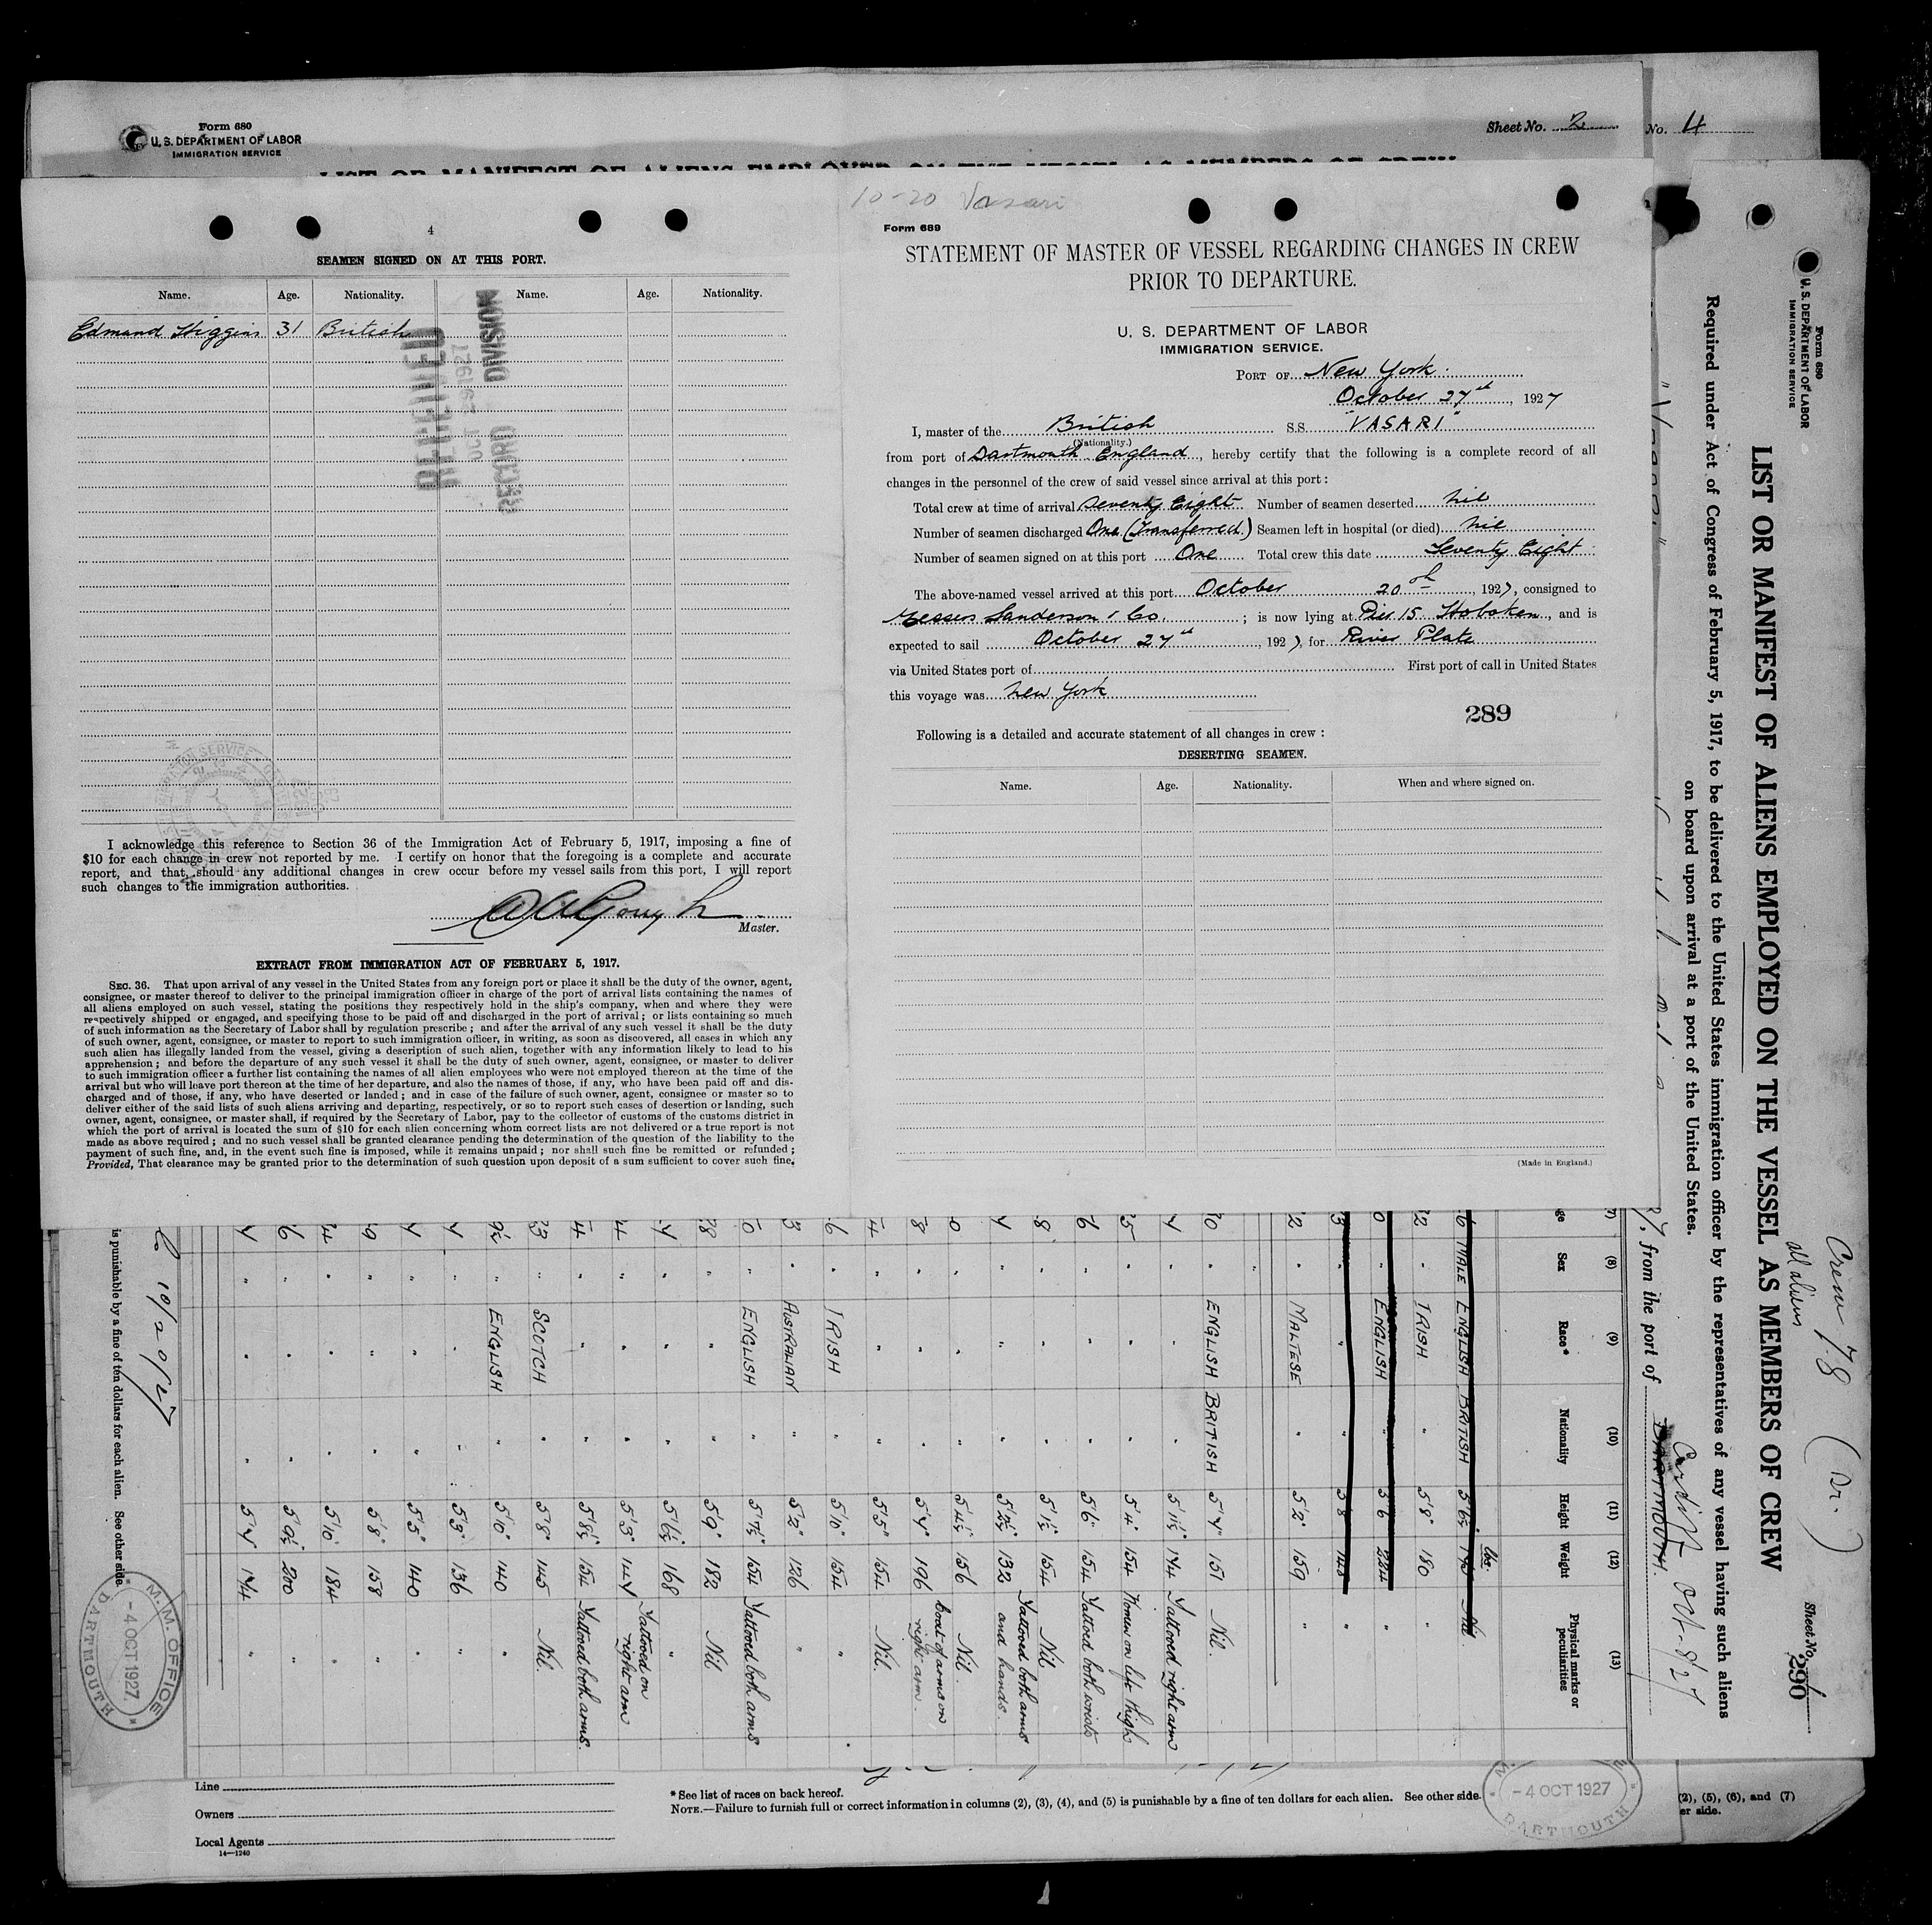 Form 680
U. S. DEPARTMENT OF LABOR
IMMIGRATION SERVICE
Sheet No. 2
No. 4
LIST OR MANIFEST OF ALIENS EMPLOYED ON THE VESSEL AS MEMBERS OF CREW
4
SEAMEN SIGNED ON AT THIS PORT.
Name. Age. Nationality. Name. Age. Nationality.
Edmand Higgins 31 British
RECORD DIVISION
10-20 Vasari
Form 689
STATEMENT OF MASTER OF VESSEL REGARDING CHANGES IN CREW
PRIOR TO DEPARTURE.
U. S. DEPARTMENT OF LABOR
IMMIGRATION SERVICE.
PORT OF New York.
October 27th, 1927
I, master of the British S.S. "VASARI"
(Nationality.)
from port of Dartmouth England, hereby certify that the following is a complete record of all
changes in the personnel of the crew of said vessel since arrival at this port :
Total crew at time of arrival Seventy Eight Number of seamen deserted nil
Number of seamen discharged One (Transferred) Seamen left in hospital (or died) nil
Number of seamen signed on at this port One Total crew this date Seventy Eight
The above-named vessel arrived at this port October 20th, 1927, consigned to
Messrs Sanderson & Co. ; is now lying at Pier 15 Hoboken, and is
expected to sail October 27th, 1927, for River Plate
via United States port of First port of call in United States
this voyage was New York
289
Following is a detailed and accurate statement of all changes in crew :
DESERTING SEAMEN.
Name. Age. Nationality. When and where signed on.
(Made in England.)
I acknowledge this reference to Section 36 of the Immigration Act of February 5, 1917, imposing a fine of
$10 for each change in crew not reported by me. I certify on honor that the foregoing is a complete and accurate
report, and that, should any additional changes in crew occur before my vessel sails from this port, I will report
such changes to the immigration authorities.
Gough
Master.
EXTRACT FROM IMMIGRATION ACT OF FEBRUARY 5, 1917.
SEC. 36. That upon arrival of any vessel in the United States from any foreign port or place it shall be the duty of the owner, agent,
consignee, or master thereof to deliver to the principal immigration officer in charge of the port of arrival lists containing the names of
all aliens employed on such vessel, stating the positions they respectively hold in the ship's company, when and where they were
respectively shipped or engaged, and specifying those to be paid off and discharged in the port of arrival ; or lists containing so much
of such information as the Secretary of Labor shall by regulation prescribe ; and after the arrival of any such vessel it shall be the duty
of such owner, agent, consignee, or master to report to such immigration officer, in writing, as soon as discovered, all cases in which any
such alien has illegally landed from the vessel, giving a description of such alien, together with any information likely to lead to his
apprehension ; and before the departure of any such vessel it shall be the duty of such owner, agent, consignee, or master to deliver
to such immigration officer a further list containing the names of all alien employees who were not employed thereon at the time of the
arrival but who will leave port thereon at the time of her departure, and also the names of those, if any, who have been paid off and dis-
charged and of those, if any, who have deserted or landed ; and in case of the failure of such owner, agent, consignee or master so to
deliver either of the said lists of such aliens arriving and departing, respectively, or so to report such cases of desertion or landing, such
owner, agent, consignee, or master shall, if required by the Secretary of Labor, pay to the collector of customs of the customs district in
which the port of arrival is located the sum of $10 for each alien concerning whom correct lists are not delivered or a true report is not
made as above required ; and no such vessel shall be granted clearance pending the determination of the question of the liability to the
payment of such fine, and, in the event such fine is imposed, while it remains unpaid ; nor shall such fine be remitted or refunded ;
Provided, That clearance may be granted prior to the determination of such question upon deposit of a sum sufficient to cover such fine.
Form 680
U. S. DEPARTMENT OF LABOR
IMMIGRATION SERVICE
Crew 78 (Dr.)
all aliens
Sheet No. 1
290
LIST OR MANIFEST OF ALIENS EMPLOYED ON THE VESSEL AS MEMBERS OF CREW
Required under Act of Congress of February 5, 1917, to be delivered to the United States immigration officer by the representatives of any vessel having such aliens
on board upon arrival at a port of the United States.
, from the port of DARTMOUTH Cardiff Oct. 8/27
(8) (9) (10) (11) (12) (13)
Sex Race* Nationality Height Weight Physical marks or peculiarities
lbs.
MALE ENGLISH BRITISH 5'6½" Nil.
2 " IRISH " 5'8" 180 "
0 " ENGLISH " 5'6 224 "
3 " " " 5'8 "
2 " MALTESE " 5'2" 159 "
0 ENGLISH BRITISH 5'4" 151 Nil.
4 " " " 5'11½" 174 Tattooed right arm
5 " " " 5'4" 154 on left thigh
6 " " " 5'6" 154 Tattoed both wrists
8 " " " 5'1½" 154 Nil
4 " " " 5'2½" 132 Tattooed both arms and hands.
0 " " " 5'4½" 156 Nil.
8 " " " 5'4" 196 coat of arms on right arm.
4 " " " 5'5" 154 Nil.
6 " IRISH " 5'10" 154 "
3 " AUSTRALIAN " 5'2" 126 "
0 " ENGLISH " 5'7½" 154 Tattooed both arms
28 " " " 5'9" 182 Nil
4 " " " 5'6½" 168 "
4 " " " 5'3" 147 Tattooed on right arm
4 " " " 5'8½" 154 Tattooed both arms.
23 " SCOTCH " 5'8" 145 Nil.
9 " ENGLISH " 5'10" 140 "
4 " " " 5'3" 136 "
4 " " " 5'5" 140 "
9 " " " 5'8" 158 "
4 " " " 5'10" 184 "
6 " " " 5'9½" 200 "
4 " " " 5'7 174 "
10/20/27
is punishable by a fine of ten dollars for each alien. See other side.
M. M. OFFICE
-4 OCT 1927.
DARTMOUTH
Line
Owners
Local Agents
14—1240
* See list of races on back hereof.
NOTE.—Failure to furnish full or correct information in columns (2), (3), (4), and (5) is punishable by a fine of ten dollars for each alien. See other side.
-4 OCT 1927
DARTMOUTH
(2), (5), (6), and (7)
er side.